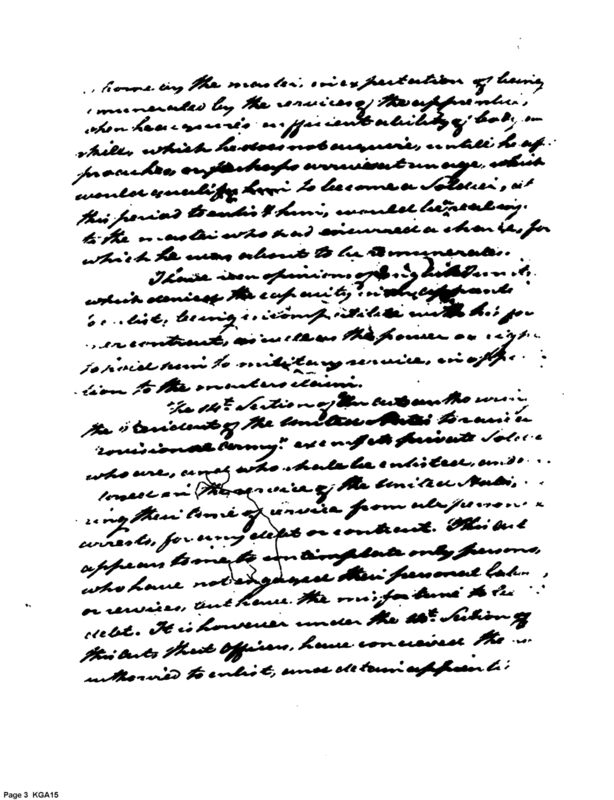 borne by the master, in expectation of being
remunerated by the services of the apprentice,
when he acquires sufficient ability of body or
skill, which he does not acquire, untill he ap-
proaches, or perhaps arrives at an age, which
would qualify him to become a Soldier, at
this period to enlist him, would be
to the master who had incurred a charge for
which he was about to be remunerated.
I have seen opinions of English
which denies the capacity in
to enlist, being incompatible with his for-
mer contract, as well as the power or right
to hold him to military service, in oppo-
tion to the masters claim.
The 14th Section of the act authorising
the President of the United States to raise a
"Provisional Army" exempts private Soldiers
who are, and who shall be enlisted, and
in the service of the United States,
ring their time of service from all personal
arrests, for any debt or contract. This act
appears to me to contemplate only persons,
who have not engaged their personal labor
or services, but have the misfortune to be
debt. It is however under the 14th Section of
this act, that Officers, have conceived
authorised to enlist, and detain apprenti
Page 3 KGA15